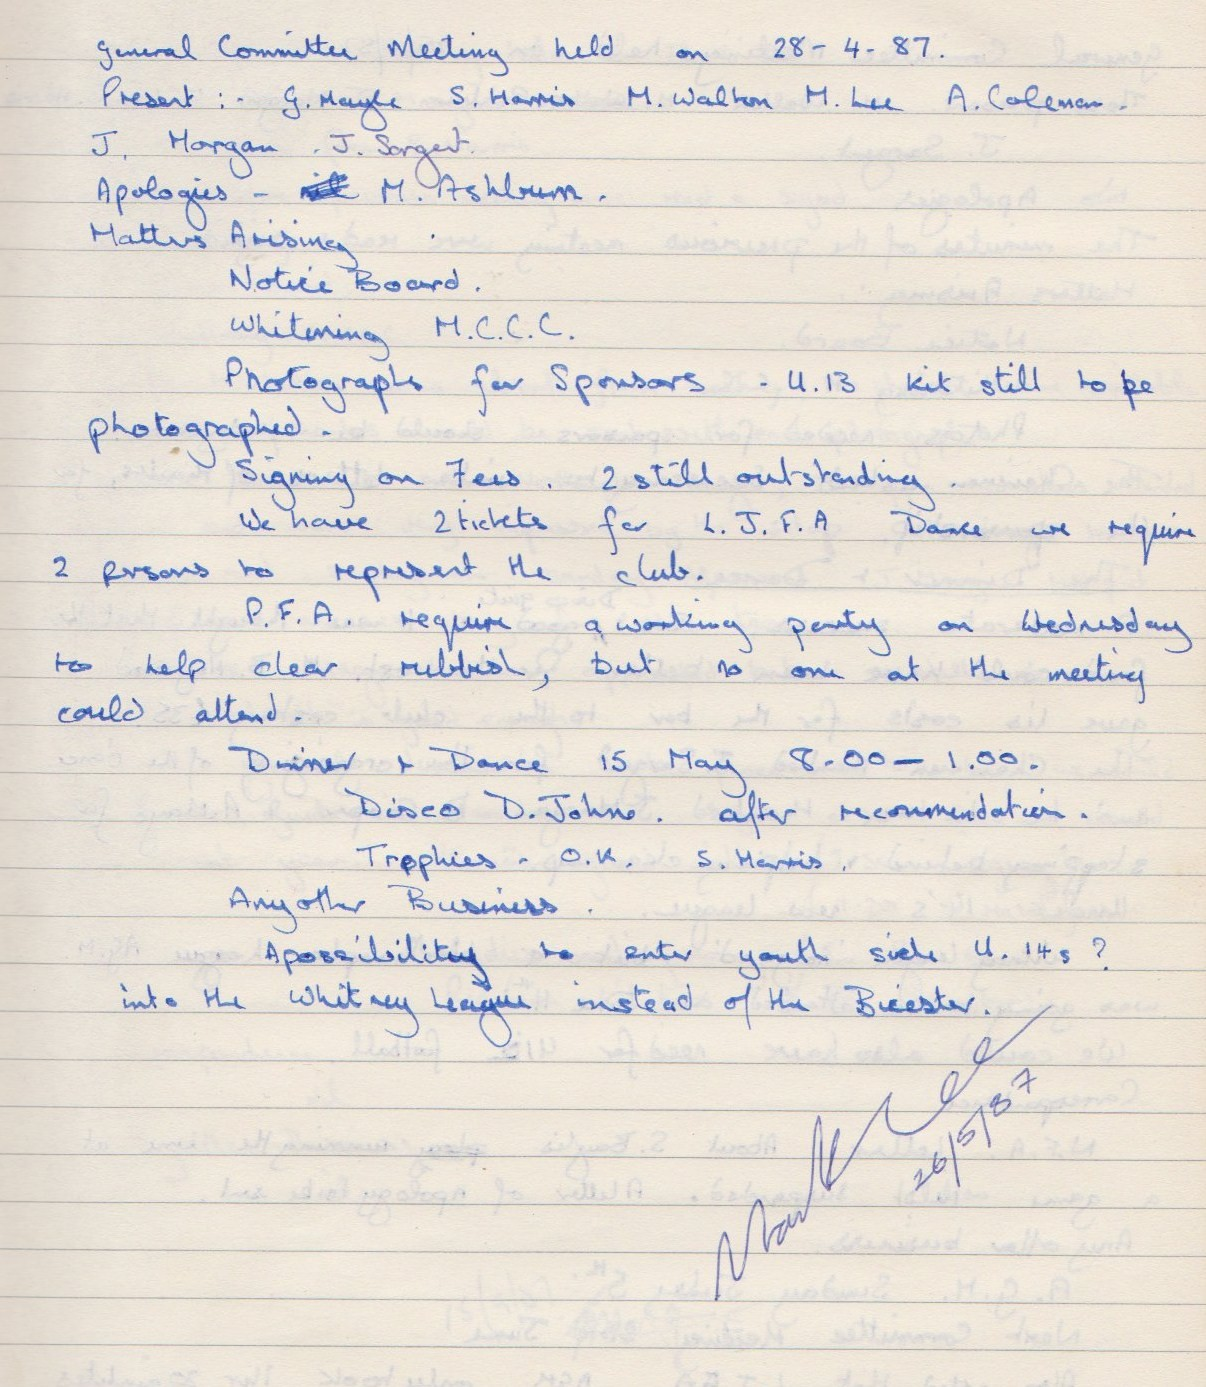 General Committee Meeting held on 28-4-87.
Present :- G. Mayle S. Harris M. Walton M. Lee A. Coleman.
J. Morgan . J. Sargent.
Apologies - M. Ashburn.
Matters Arising
Notice Board.
Whitening M.C.C.C.
Photographs for Sponsors - U.13 kit still to be
photographed.
Signing on Fees. 2 still outstanding.
We have 2 tickets for L.J.F.A Dance we require
2 persons to represent the club.
P.F.A. require a working party on Wednesday
to help clear rubbish, but no one at the meeting
could attend.
Dinner + Dance 15 May 8-00 - 1.00.
Disco D. Johns. after recommendation.
Trophies - O.K. S. Harris.
Any other Business.
A possibility to enter youth side U. 14s ?
into the Whitney League instead of the Bicester.
Mark Lee
26/5/87